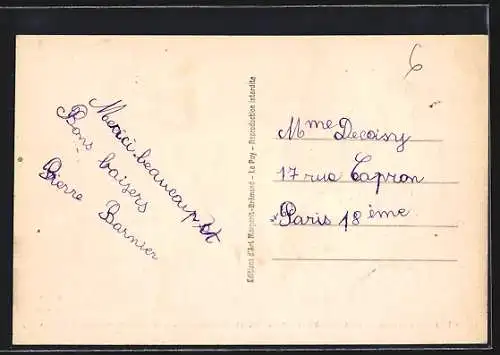 Merci beaucoup et
Bons baisers
Pierre Barnier
Editions d'Art Margerit-Brémond - Le Puy - Reproduction interdite
6
Mme Decoisy
17 rue Capron
Paris 18 ème